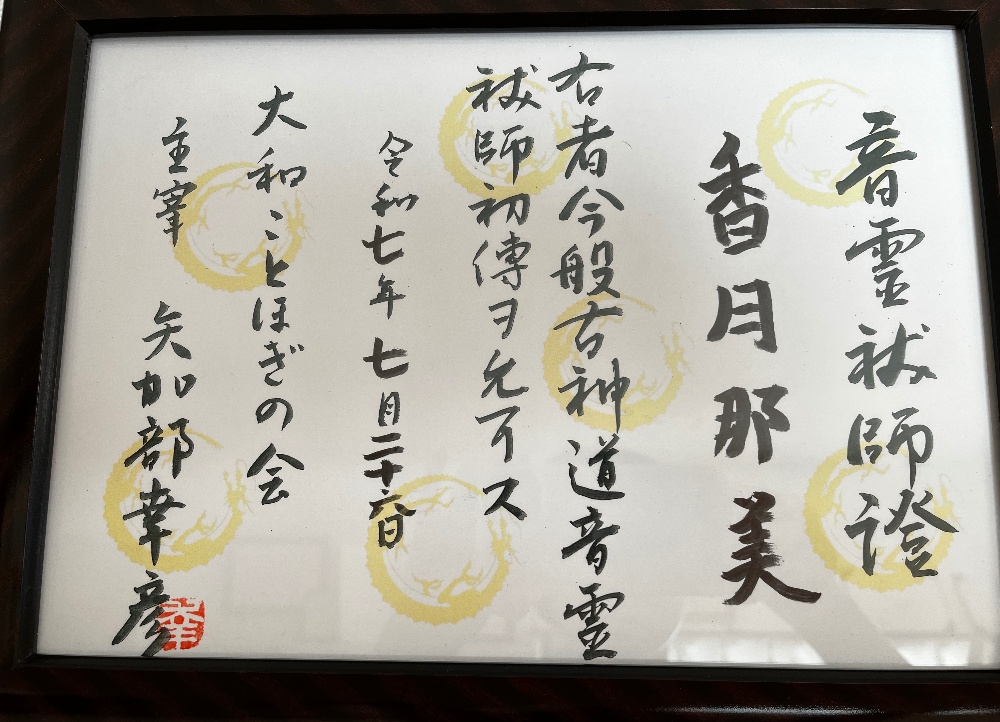 音霊祓師證
香月那美
右者今般古神道音霊
祓師初傳ヲ允可ス
令和七年七月二十六日
大和ことほぎの会
主宰 矢加部幸彦